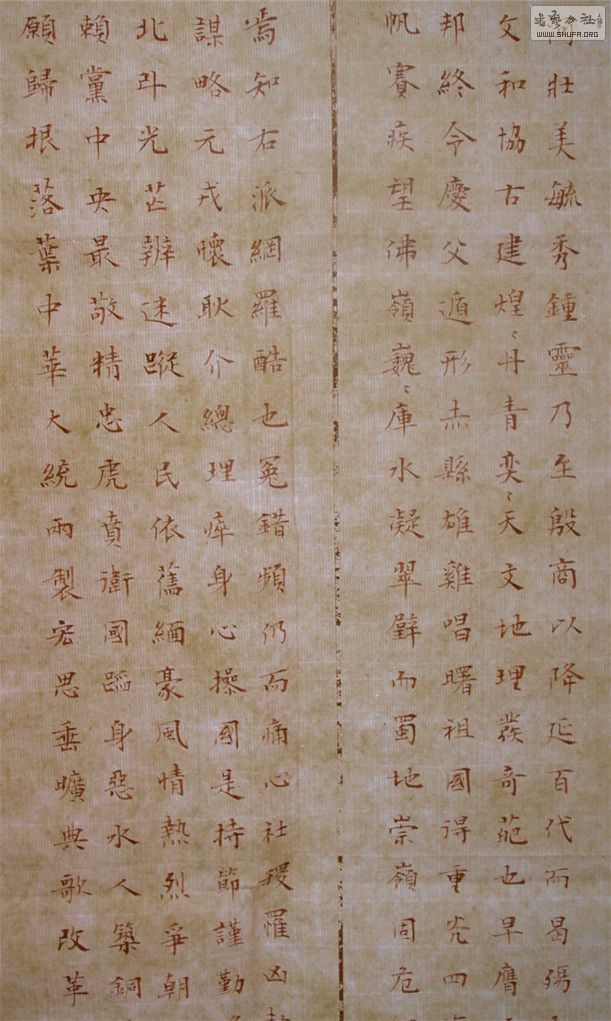 壯美毓秀鍾靈乃至殷商以降延百代而曷
文和協古建煌々丹青奕々天文地理發奇葩也早膺
邦終令慶父遁形赤縣雄雞唱曙祖國得重光四
帆賽疾望佛嶺巍々庫水凝翠壁而蜀地崇嶺固危
焉知右派網羅酷也冤錯頻仍而痛心社稷罹凶
謀略元戎懷耿介總理瘁身心操國是持節謹勤
北斗光芒辦迷蹤人民依舊緬豪風情熱烈爭朝
賴黨中央最敬精忠虎賁衛國蹈身惡水人築銅
願歸根落葉中華大統兩製宏思垂曠典歌改革
書藝公社
WWW.SHUFA.ORG